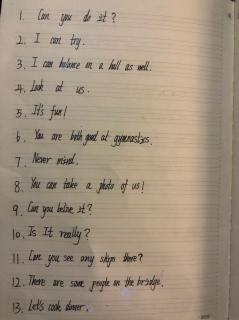 1. Can you do it?
2. I can try.
3. I can balance on a ball as well.
4. Look at us.
5. It's fun!
6. You are both good at gymnastics.
7. Never mind.
8. You can take a photo of us!
9. Can you belive it?
10. Is It really?
11. Can you see any ships there?
12. There are some people on the bridge.
13. Let's cook dinner.